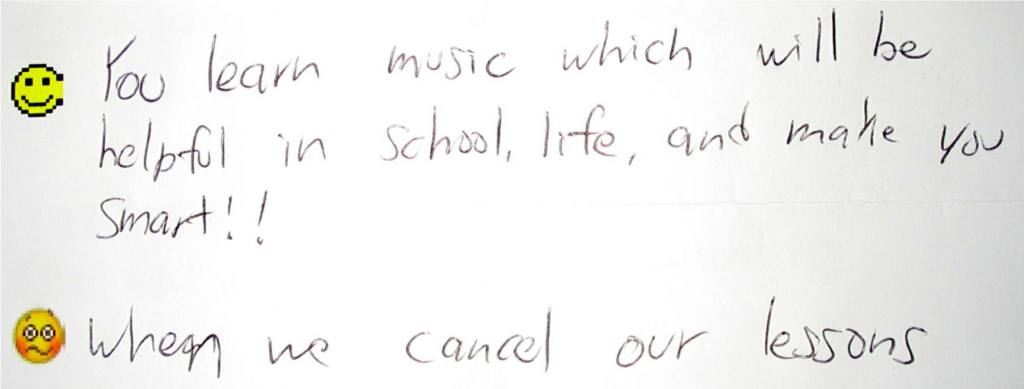 You learn music which will be
helpful in school, life, and make you
smart!!
when we cancel our lessons